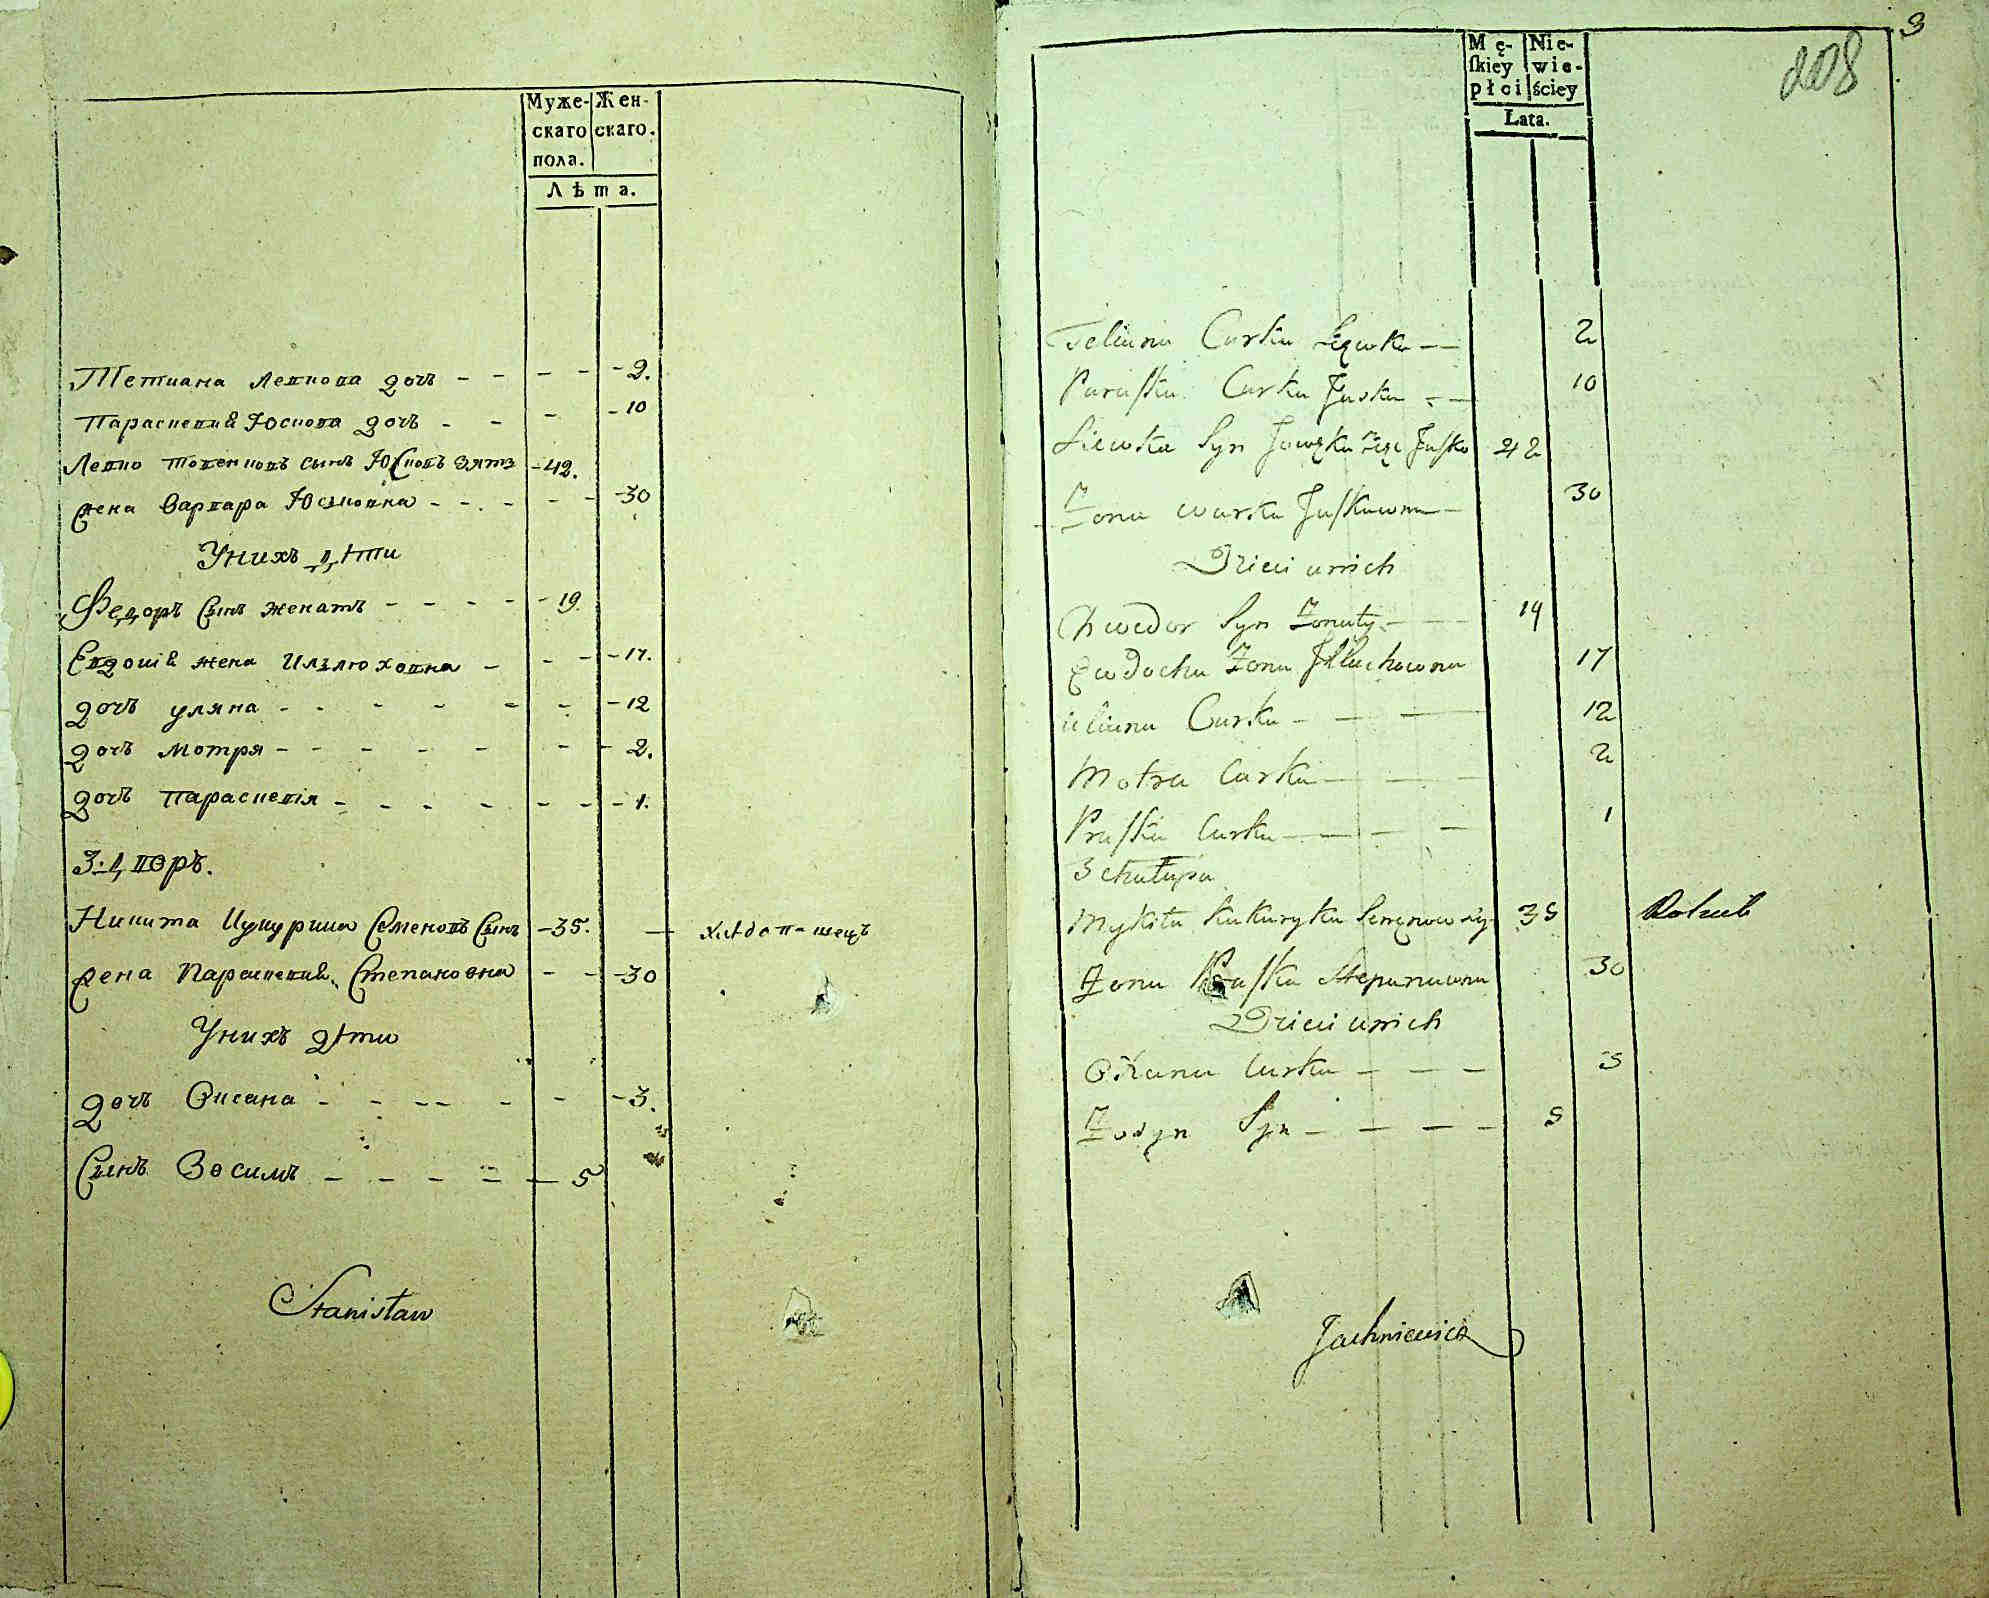 Муже- Жен-
скаго скаго.
пола.
Лѣта.
Тетиана Левкова дочь - - - - - 2.
Параскевия Юскова дочь - - - - 10
Левко сынъ Юсковъ зятъ - 42.
жена Варвара Юсковна - - - - - - 30
Унихъ дѣти
Федоръ Сынъ женатъ - - - - - 19.
Евдошия жена Иллюховна - - - - 17.
дочь уляна - - - - - - - 12
дочь Мотря - - - - - - - 2.
дочь Параскевія - - - - - - - 1.
3. дворъ.
Никита Кукурика Семеновъ Сынъ - 35. — хлѣбопашецъ
жена Параскевия Степановна - - - 30
Унихъ дѣти
дочь Оксана - - - - - - - 3.
Сынъ Зосимъ - - - - - 5
Stanisław
3
208
Mę- Nie-
ſkiey wie-
płci ściey
Lata.
Teliana Curka Lewka — — 2
Paraſka Curka Juska - — 10
Liewka Syn Jowka Zięc Juſka 42
Żona warka Juſkowna — 30
Dzieci unich
Chwedor Syn Żonaty - — — 19
Ewdocha Żona Illuchowna 17
uliana Curka - — — — 12
Motra Curka — — — 2
Praſka Curka — — — — 1
3 chałupa
Mykita Kukuryka Semenow Sy 35 Rolnik
Żona Praſka Stepanowna 30
Dzieci unich
Oxana Curka — — — 3
Zosyn Syn — — — — 5
Jachniewicz